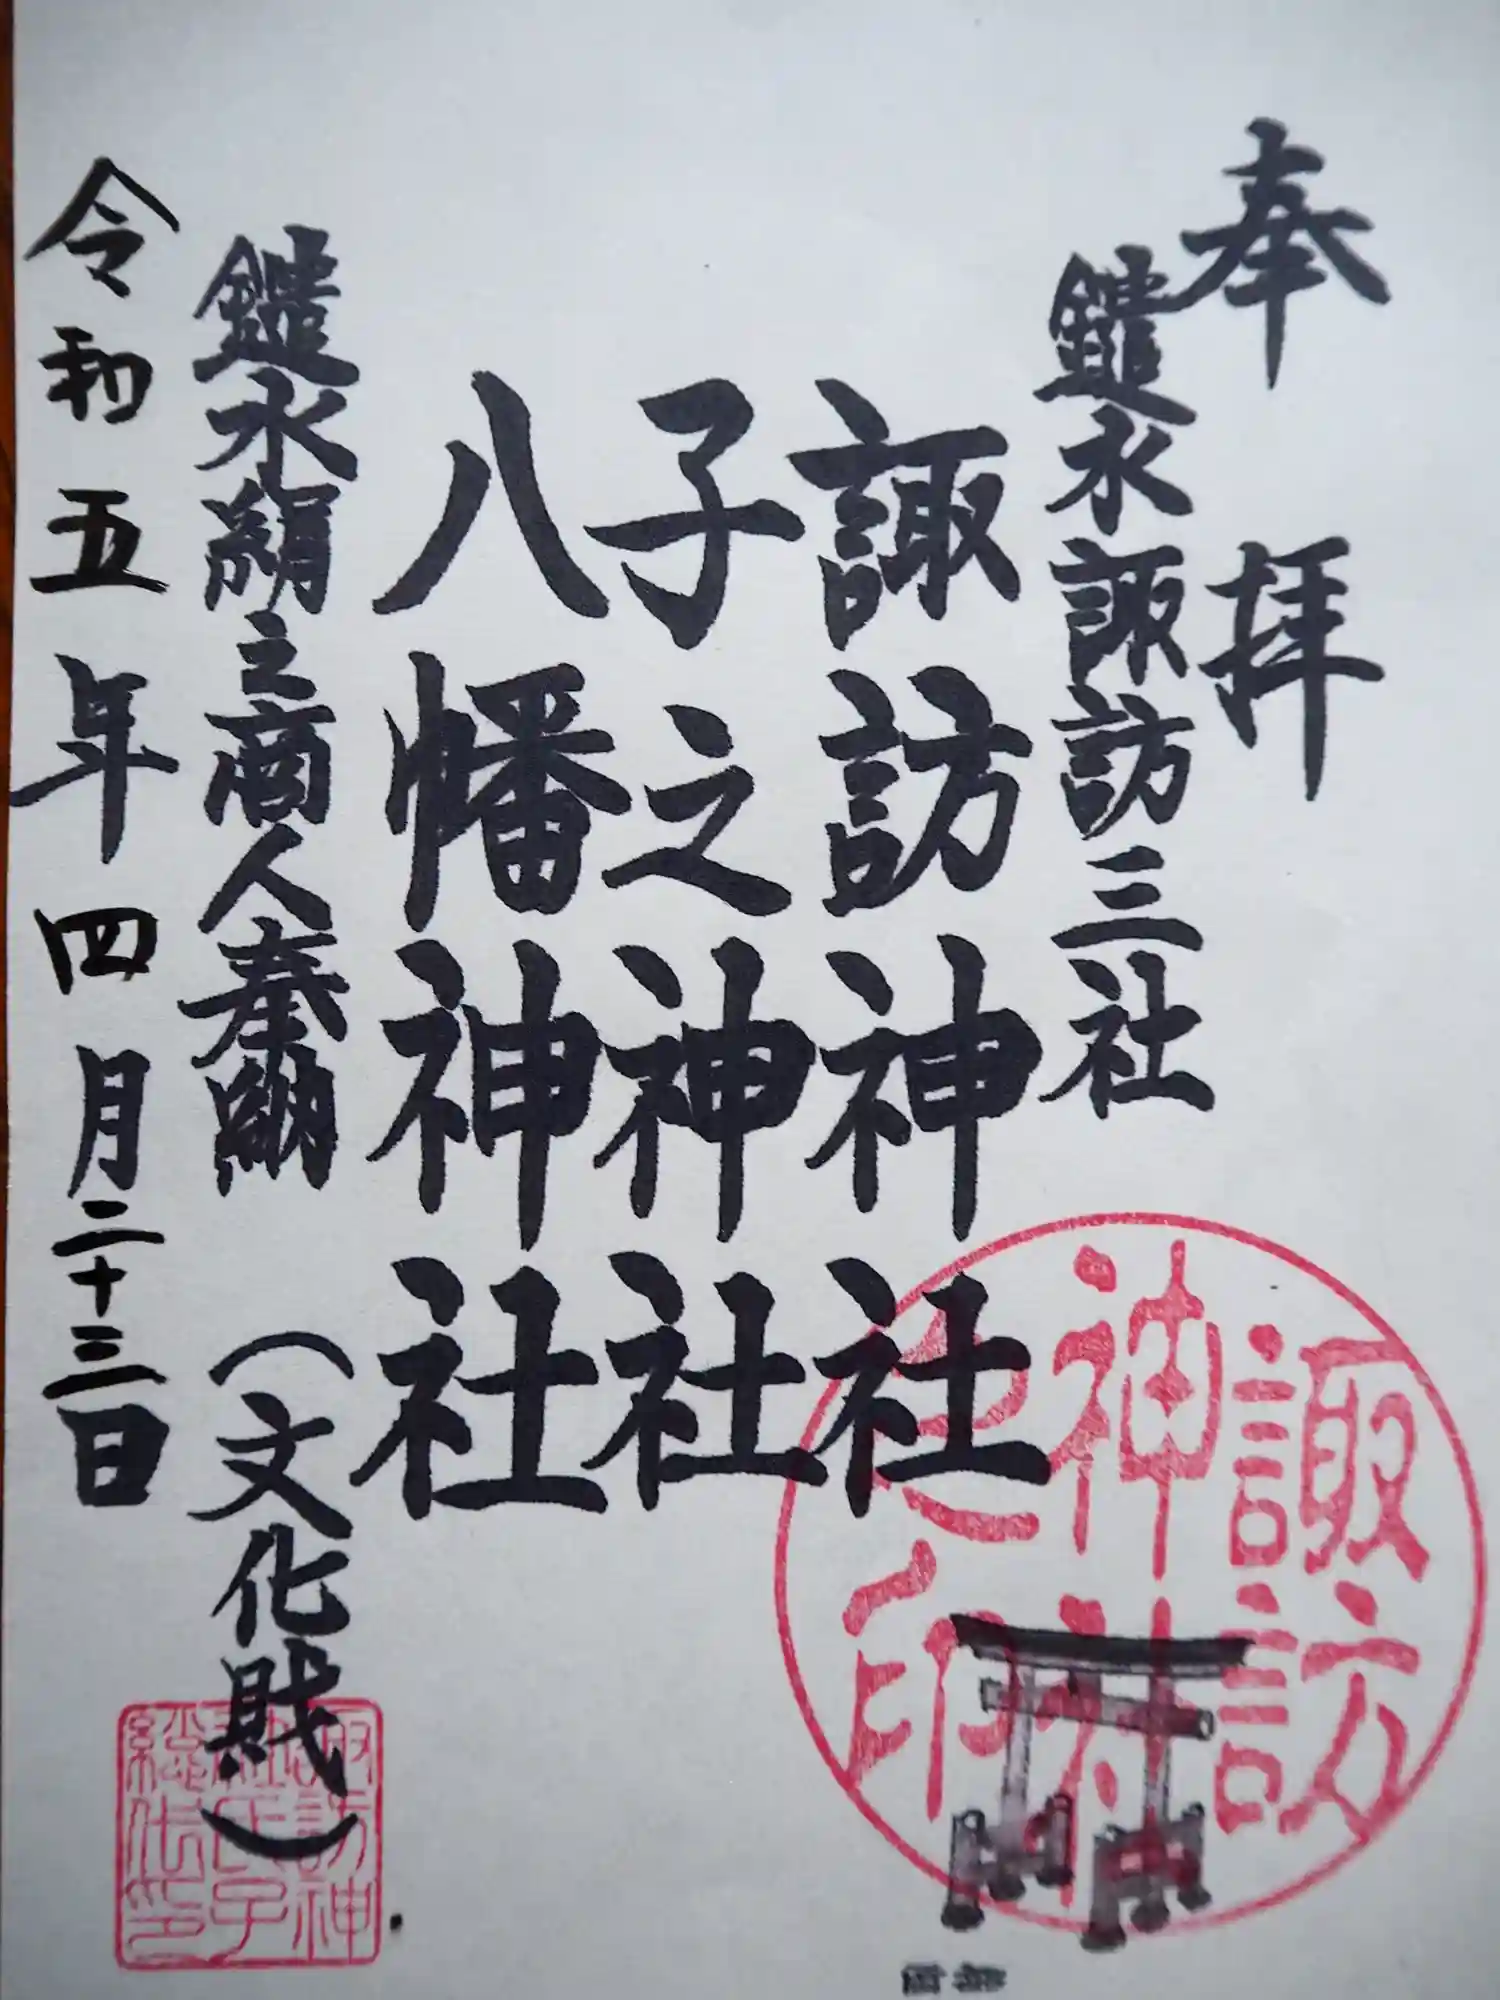 奉拝
鑓水諏訪三社
諏訪神社
子之神社
八幡神社
鑓水絹之商人奉納（文化財）
令和五年四月二十三日
諏訪
神社
之印
諏訪神
社氏子
総代印